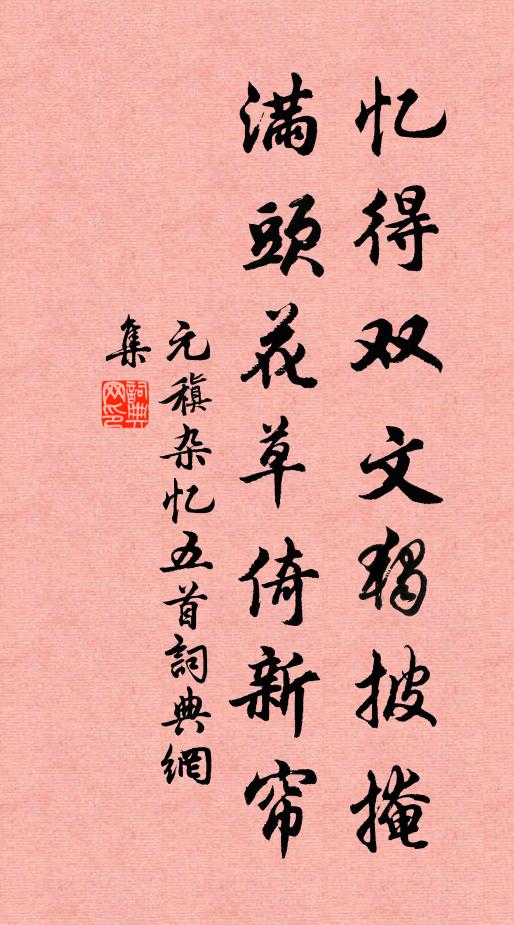 忆得双文独披掩
满頭花草倚新帘
元稹杂忆五首詞典網
集
詞典網印